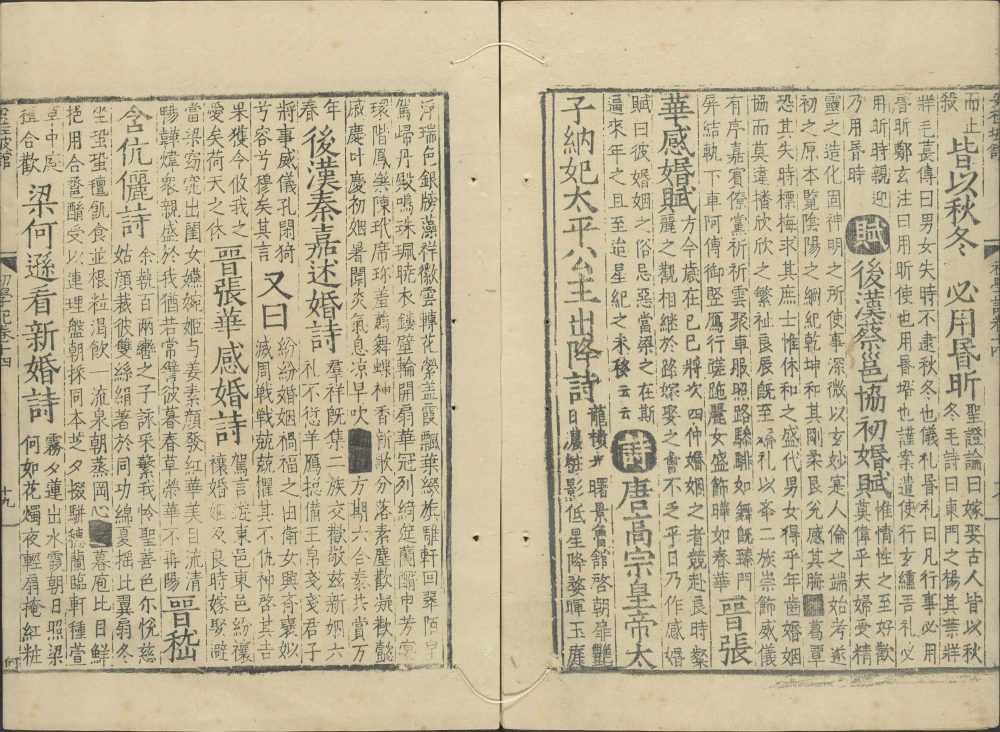 而止
殺
皆以秋冬 必用昏昕
聖證論曰嫁娶古人皆以秋
冬毛詩曰東門之楊其葉牂
牂毛萇傳曰男女失時不逮秋冬也儀礼昏礼曰凡行事必用
昏昕鄭玄注曰用昕使也用昏壻也
用昕時親迎
乃用昏時
賦
後漢蔡邕協初婚賦
惟情性之至好歡
莫偉乎夫婦受精
靈之造化固神明之所使事深微以玄妙寔人倫之端始考遂
初之原本覽陰陽之綱紀乾坤和其剛柔艮兊感其腓葛覃
恐其失時標梅求其庶士惟休和之盛代男女得乎年齒婚姻
協而莫違播欣欣之繁祉良辰既至婚礼以舉二族崇飾威儀
有序嘉賓僚黨祈祈雲聚車服照路驂騑如舞既臻門
屏結軌下車阿傅御竪鴈行蹉跎麗女盛飾曄如春華
晉張
華感婚賦
方今歲在己巳將次四仲婚姻之者競赴良時粲
麗之觀相継於路嫁娶之會不乏乎日乃作感婚
賦曰彼婚姻之俗忌惡當梁之在斯
逼來年之且至迨星紀之未移云云
詩
唐高宗皇帝太
子納妃太平公主出降詩
龍樓光曙景魯舘啓朝扉艷
日濃粧影低星降婺暉玉庭
浮瑞色銀牓藻祥徽雲轉花縈蓋霞飄葉綴旂雕軒回翠陌
駕歸丹殿鳴珠珮曉衣鏤璧輪開扇華冠列綺筵蘭醑申芳宴
環階鳳樂陳玳席珍羞薦蝶舞袖香新歌分落素塵歡凝歡懿
戚慶叶慶初姻暑闌炎氣息凉早吹
方期六合泰共賞万
年
春
後漢秦嘉述婚詩
羣祥既集二族交歡敬兹新姻六
礼不愆羊鴈摠備玉帛戔戔君子
將事威儀孔閑猗
兮容兮穆矣其言
又曰
紛紛婚姻禍福之由衛女興齊褒姒
滅周戰戰兢兢懼其不仇神啓其吉
果獲令攸我之
愛矣荷天之休
晉張華感婚詩
駕言遊東邑東邑紛禳
禳婚姻及良時嫁娶避
當梁窈窕出閨女嬿婉姬与姜素顔發紅華美目流清
暘韡煒衆親盛於我猶若常譬彼暮春草榮華不再陽
晉嵇
含伉儷詩
余執百兩轡之子詠采蘩我怜聖善色尓恱慈
姑顔裁彼雙絲絹著於同功綿夏摇比翼扇冬
坐蛩蛩氊飢食並根粒渴飲一流泉朝蒸同心
暮庖比目鮮
挹用合巹醑受以連理盤朝採同本芝夕掇駢穗蘭臨軒種萱
草中庭
植合歡
梁何遜看新婚詩
霧夕蓮出水霞朝日照梁
何如花燭夜輕扇掩紅粧
初學記卷十四
十九
何